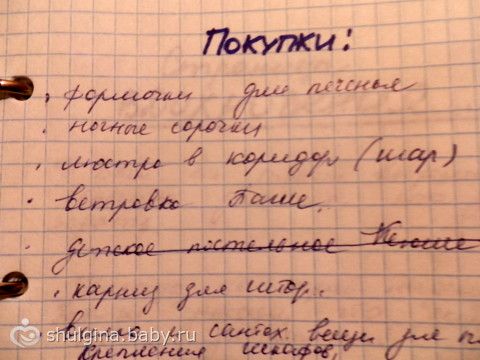 Покупки:
• формочки для печенья
• ночные сорочки
• люстра в коридор (шар)
• ветровка Паше.
• детское постельное
• карниз для штор.
• и сантех. вещи для
крепления шкафов;
shulgina.baby.ru